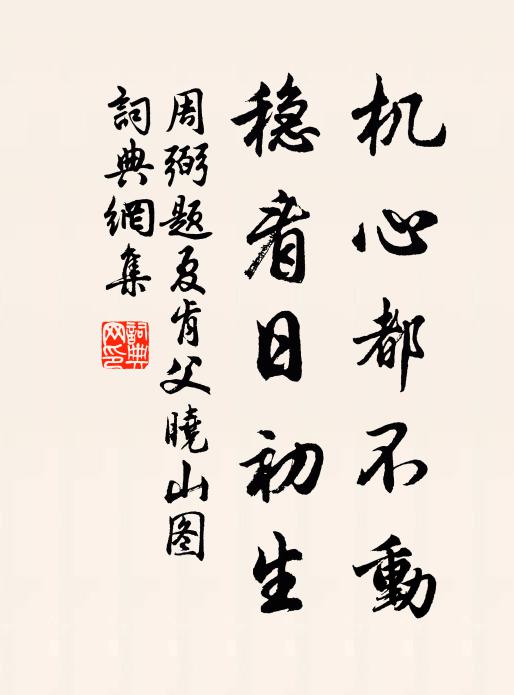 机心都不動
稳看日初生
周弼题夏肯父曉山图
詞典網集
詞典网印